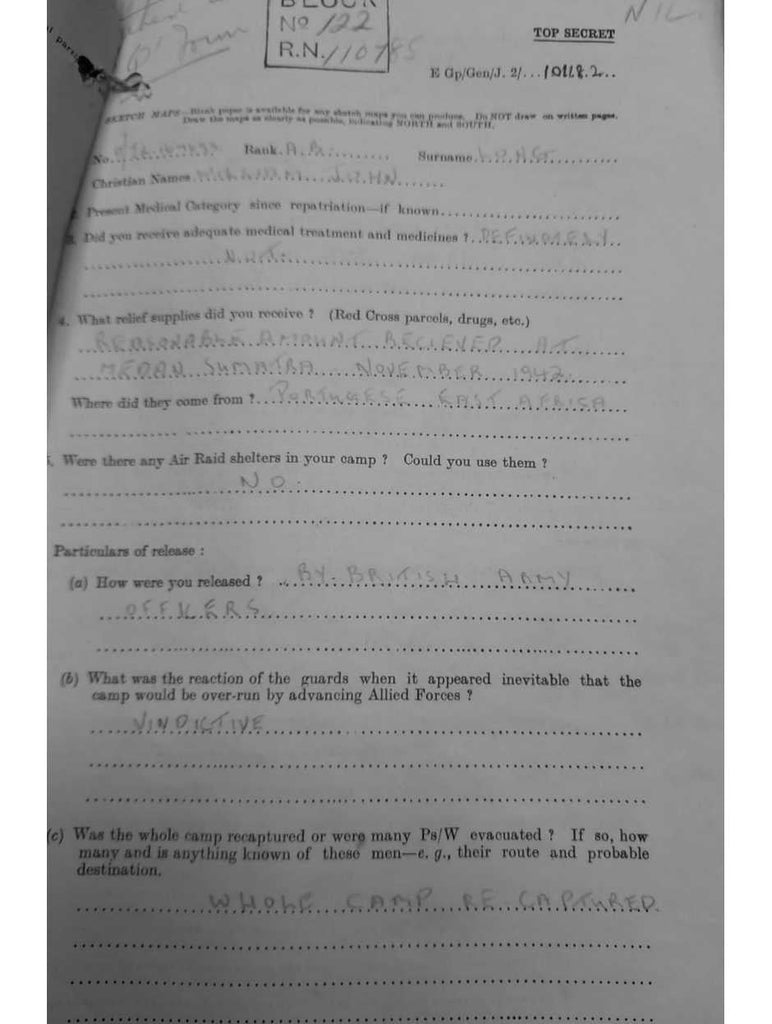 BLOCK
NIL
No 122
R.N. 110785
TOP SECRET
E Gp/Gen/J. 2/...10118.2...
SKETCH MAPS—Blank paper is available for any sketch maps you can produce. Do NOT draw on written pages.
Draw the maps as clearly as possible, indicating NORTH and SOUTH.
No. Rank. A.B. Surname. LONG
Christian Names. JOHN
Present Medical Category since repatriation—if known
3. Did you receive adequate medical treatment and medicines ? DEFINITELY
NOT.
4. What relief supplies did you receive ? (Red Cross parcels, drugs, etc.)
REASONABLE AMOUNT RECIEVED AT
MEDAN SUMATRA NOVEMBER 1942.
Where did they come from ? PORTUGESE EAST AFRICA
Were there any Air Raid shelters in your camp ? Could you use them ?
NO.
Particulars of release :
(a) How were you released ? BY BRITISH ARMY
OFFICERS
(b) What was the reaction of the guards when it appeared inevitable that the
camp would be over-run by advancing Allied Forces ?
VINDICTIVE
(c) Was the whole camp recaptured or were many Ps/W evacuated ? If so, how
many and is anything known of these men—e. g., their route and probable
destination.
WHOLE CAMP RE CAPTURED.